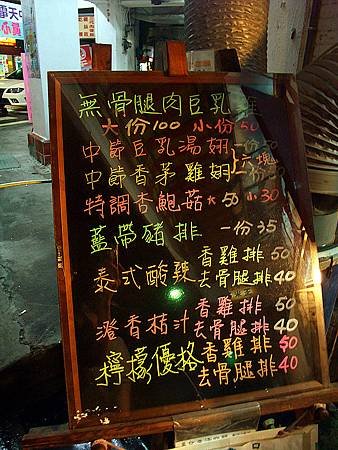 無骨腿肉豆乳雞
大份100 小份50
中節豆乳湯翅 一份50
中節香茅雞翅 六塊 一份50
特調香鮑菇 大50 小30
藍帶豬排 一份35
泰式酸辣 香雞排 50
去骨腿排 40
澄香桔汁 香雞排 50
去骨腿排 40
檸檬優格 香雞排 50
去骨腿排 40